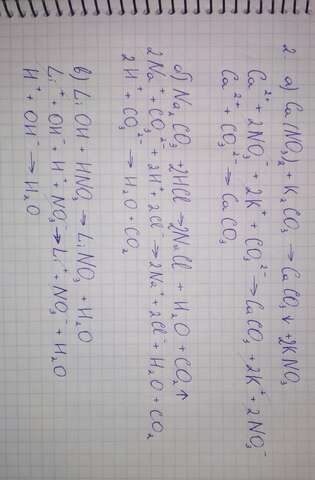 2. а) Ca(NO₃)₂ + K₂CO₃ → CaCO₃↓ + 2KNO₃
Ca²⁺ + 2NO₃⁻ + 2K⁺ + CO₃²⁻ → CaCO₃ + 2K⁺ + 2NO₃⁻
Ca²⁺ + CO₃²⁻ → CaCO₃
б) Na₂CO₃ + 2HCl → 2NaCl + H₂O + CO₂↑
2Na⁺ + CO₃²⁻ + 2H⁺ + 2Cl⁻ → 2Na⁺ + 2Cl⁻ + H₂O + CO₂
2H⁺ + CO₃²⁻ → H₂O + CO₂
в) LiOH + HNO₃ → LiNO₃ + H₂O
Li⁺ + OH⁻ + H⁺ + NO₃⁻ → Li⁺ + NO₃⁻ + H₂O
H⁺ + OH⁻ → H₂O